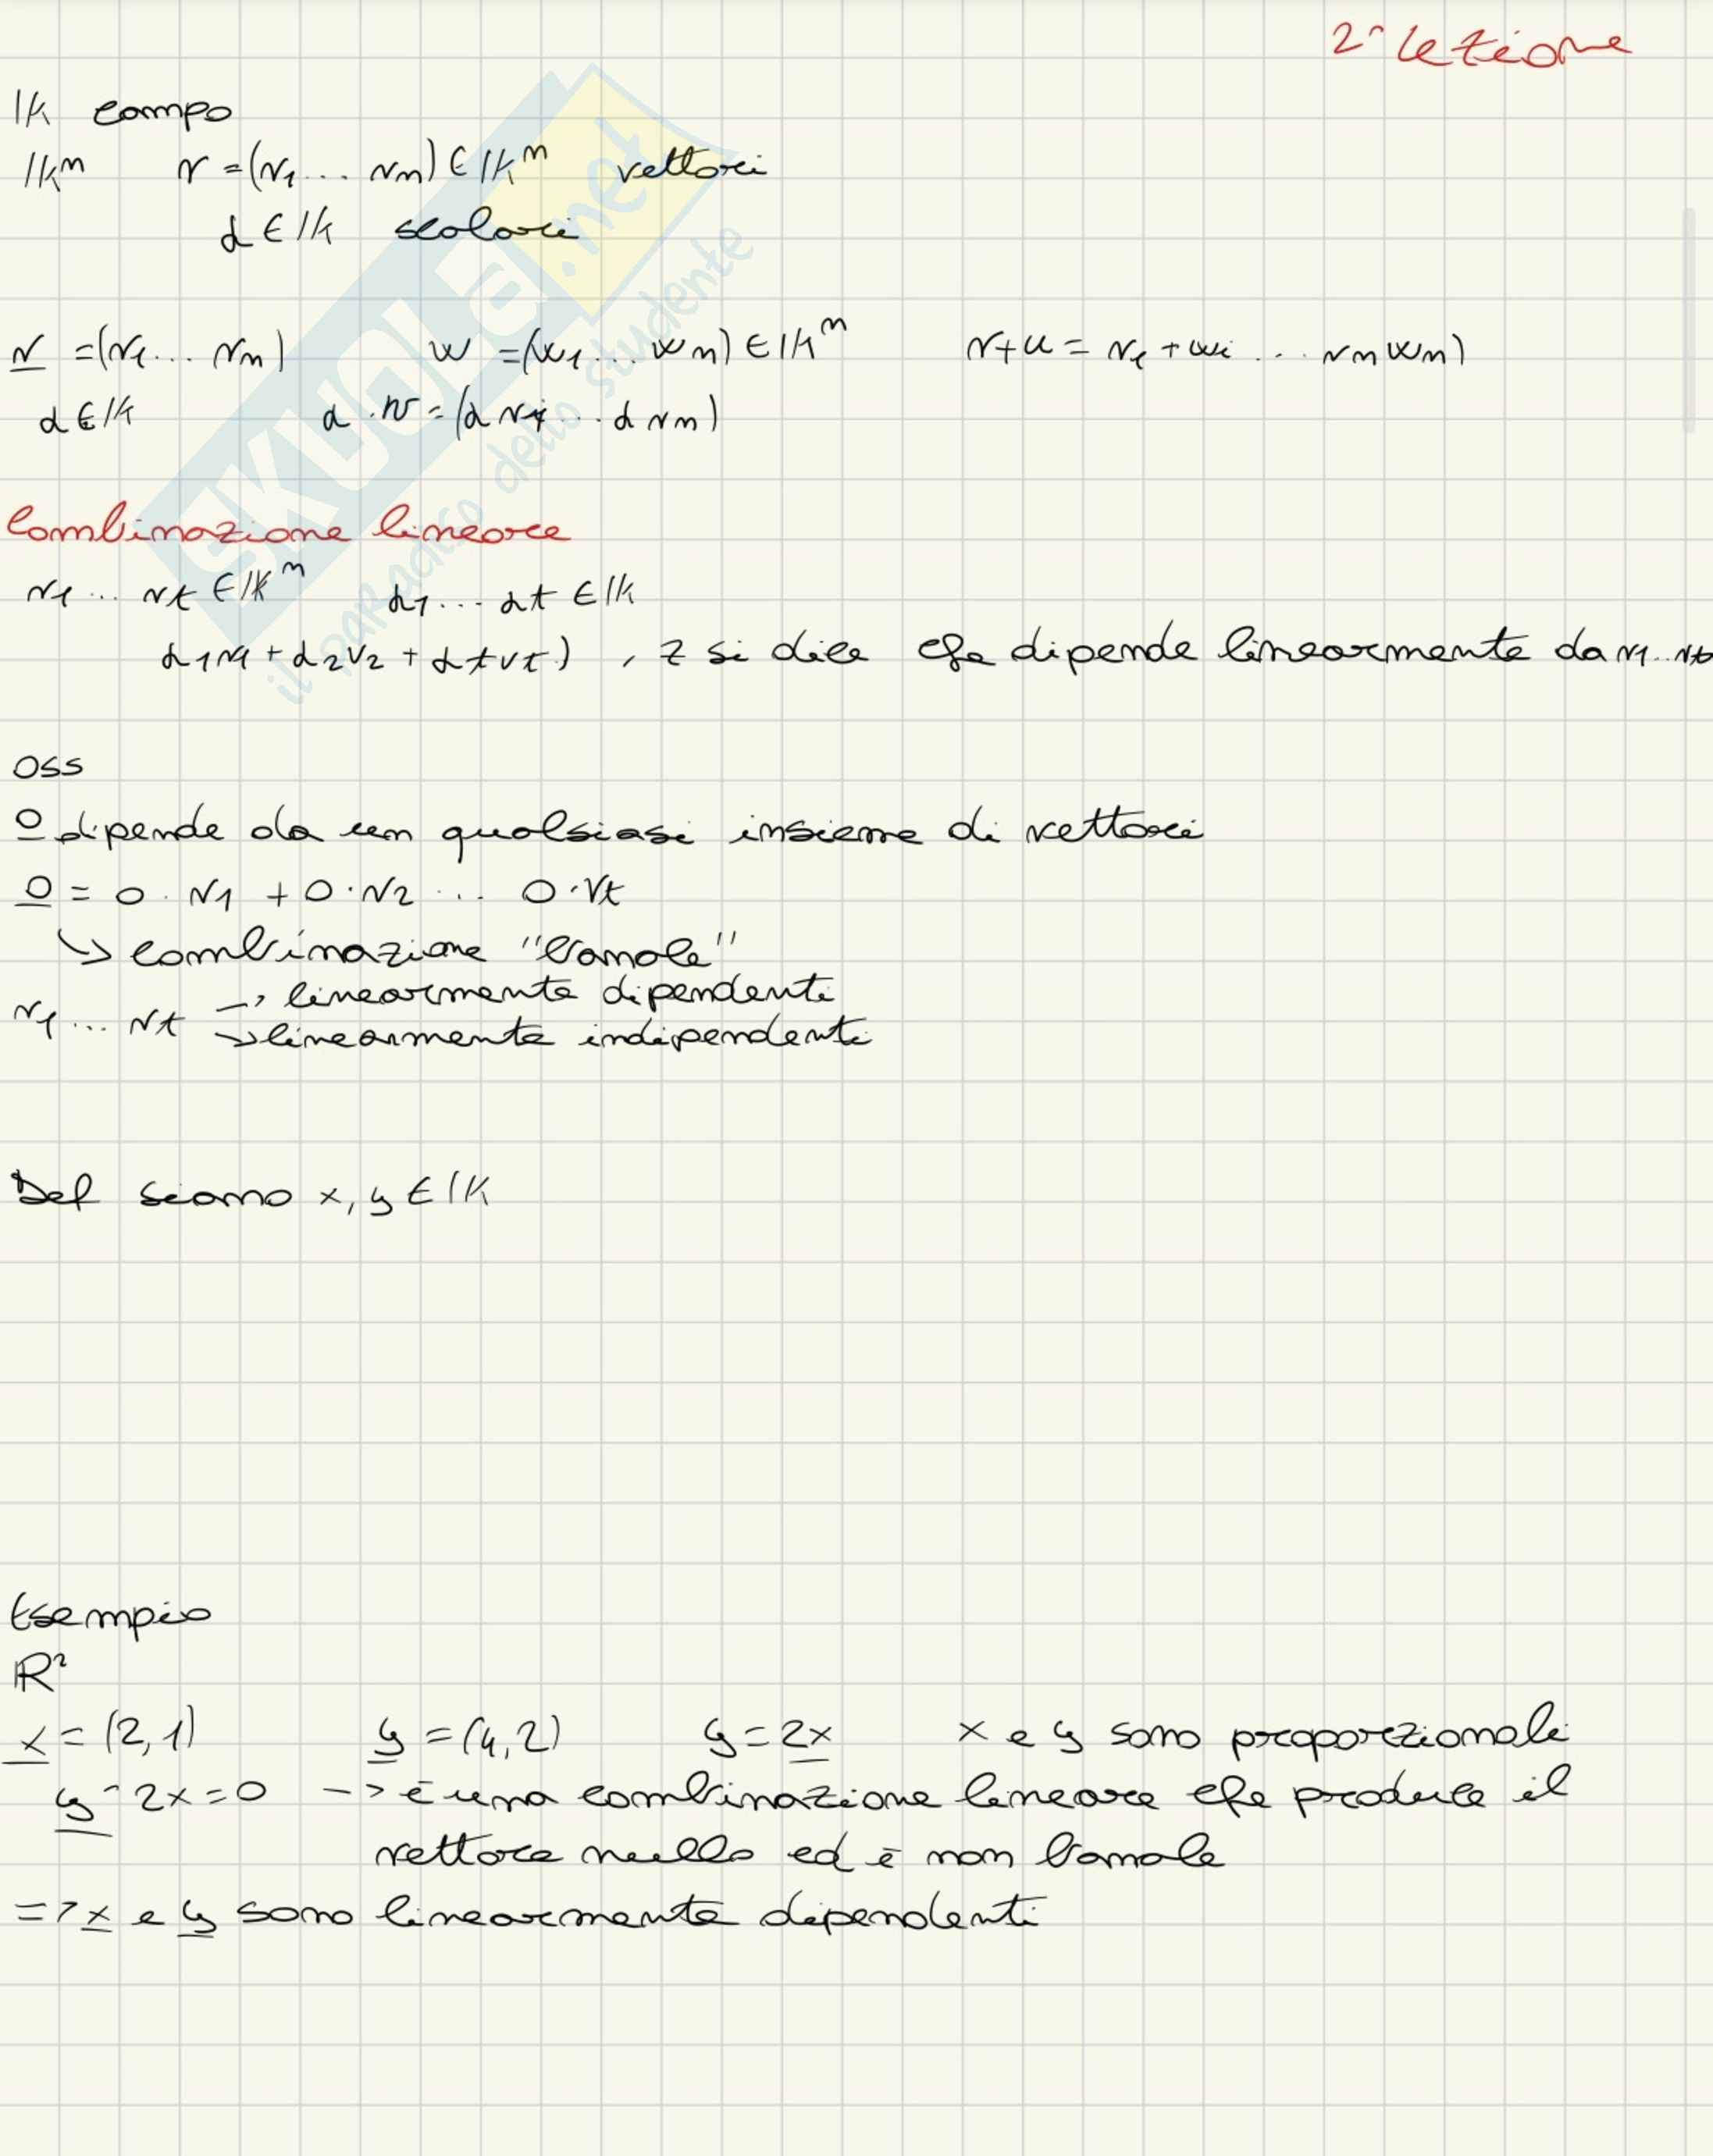 2ª lezione
𝕂 campo
𝕂ⁿ v = (v₁ ... vₙ) ∈ 𝕂ⁿ vettori
α ∈ 𝕂 scalari
v = (v₁ ... vₙ) w = (w₁ ... wₙ) ∈ 𝕂ⁿ v+u = v₁ + wi ... vₙ wₙ)
α ∈ 𝕂 α · v = (α v₁ ... α vₙ)
Combinazione lineare
v₁ ... vt ∈ 𝕂ⁿ α₁ ... αt ∈ 𝕂
α₁v₁ + α₂v₂ + αtvt) , z si dice che dipende linearmente da v₁...vt
OSS
0 dipende da un qualsiasi insieme di vettori
0 = 0 · v₁ + 0 · v₂ ... 0 · vt
↳ combinazione "banale"
v₁ ... vt -> linearmente dipendenti
-> linearmente indipendenti
Def siano x, y ∈ 𝕂
Esempio
ℝ²
x = (2,1) y = (4,2) y = 2x x e y sono proporzionali
y - 2x = 0 -> è una combinazione lineare che produce il
vettore nullo ed è non banale
=> x e y sono linearmente dipendenti
SKUOLA.net
il paradiso dello studente